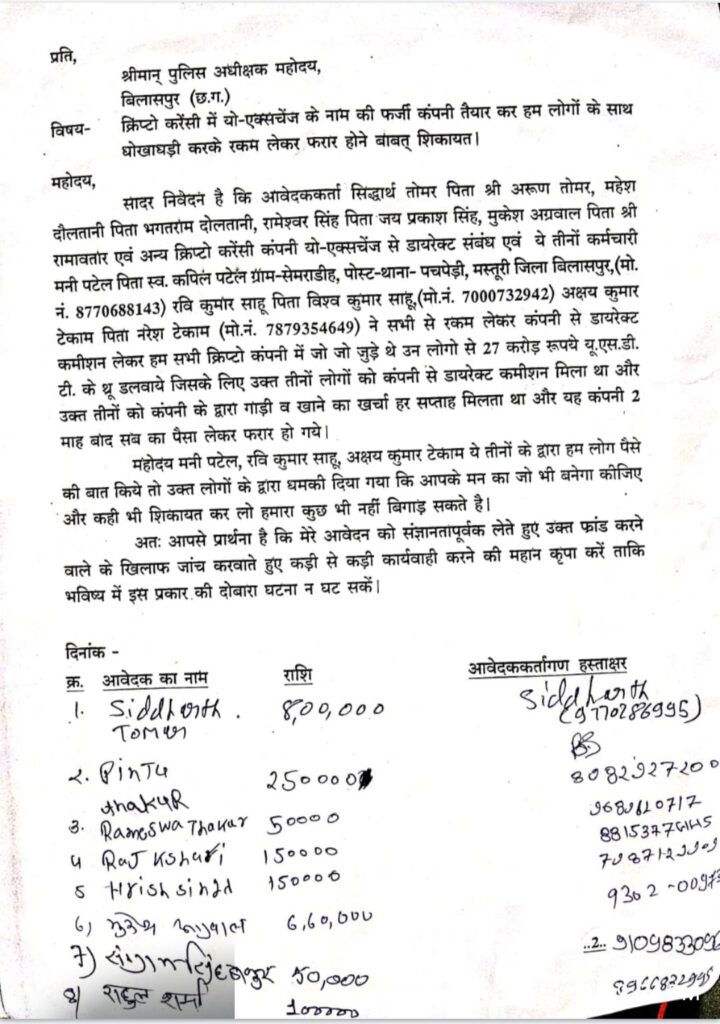 प्रति,
श्रीमान् पुलिस अधीक्षक महोदय,
बिलासपुर (छ.ग.)
विषय- क्रिप्टो करेंसी में यो-एक्सचेंज के नाम की फर्जी कंपनी तैयार कर हम लोगों के साथ
धोखाधड़ी करके रकम लेकर फरार होने बाबत् शिकायत।
महोदय,
सादर निवेदन है कि आवेदककर्ता सिद्धार्थ तोमर पिता श्री अरूण तोमर, महेश
दौलतानी पिता भगतराम दोलतानी, रामेश्वर सिंह पिता जय प्रकाश सिंह, मुकेश अग्रवाल पिता श्री
रामावतार एवं अन्य क्रिप्टो करेंसी कंपनी यो-एक्सचेंज से डायरेक्ट संबंध एवं ये तीनों कर्मचारी
मनी पटेल पिता स्व. कपिल पटेल ग्राम-सेमराडीह, पोस्ट-थाना- पचपेड़ी, मस्तूरी जिला बिलासपुर,(मो.
नं. 8770688143) रवि कुमार साहू पिता विश्व कुमार साहू,(मो.नं. 7000732942) अक्षय कुमार
टेकाम पिता नरेश टेकाम (मो.नं. 7879354649) ने सभी से रकम लेकर कंपनी से डायरेक्ट
कमीशन लेकर हम सभी क्रिप्टो कंपनी में जो जो जुड़े थे उन लोगो से 27 करोड़ रूपये यू.एस.डी.
टी. के थ्रू डलवाये जिसके लिए उक्त तीनों लोगों को कंपनी से डायरेक्ट कमीशन मिला था और
उक्त तीनों को कंपनी के द्वारा गाड़ी व खाने का खर्चा हर सप्ताह मिलता था और यह कंपनी 2
माह बाद सब का पैसा लेकर फरार हो गये।
महोदय मनी पटेल, रवि कुमार साहू, अक्षय कुमार टेकाम ये तीनों के द्वारा हम लोग पैसे
की बात किये तो उक्त लोगों के द्वारा धमकी दिया गया कि आपके मन का जो भी बनेगा कीजिए
और कही भी शिकायत कर लो हमारा कुछ भी नहीं बिगाड़ सकते है।
अतः आपसे प्रार्थना है कि मेरे आवेदन को संज्ञानतापूर्वक लेते हुए उक्त फ्रांड करने
वाले के खिलाफ जांच करवाते हुए कड़ी से कड़ी कार्यवाही करने की महान कृपा करें ताकि
भविष्य में इस प्रकार की दोबारा घटना न घट सकें।
दिनांक -
क्र. आवेदक का नाम राशि आवेदककर्तागण हस्ताक्षर
1. Siddharth Tomar 8,00,000 Siddharth (9770286995)
2. Pintu Thakur 250000 8082927200
3. Rameswa Thakur 50000
4 Raj 150000
5 150000
6) मुकेश अग्रवाल 6,60,000
..2..
7) 50,000
8) राहुल शर्मा 100000